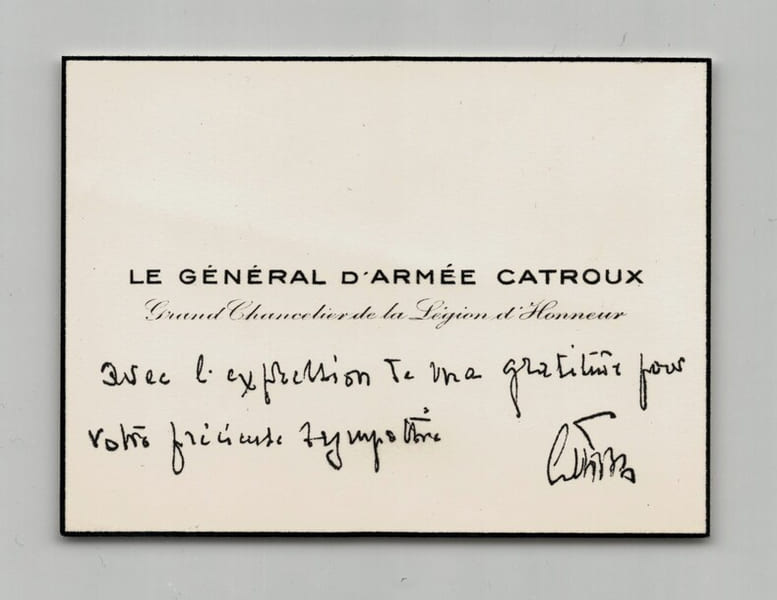 LE GÉNÉRAL D'ARMÉE CATROUX
Grand Chancelier de la Légion d'Honneur
avec l'expression de ma gratitude pour
votre précieuse sympathie
Catroux